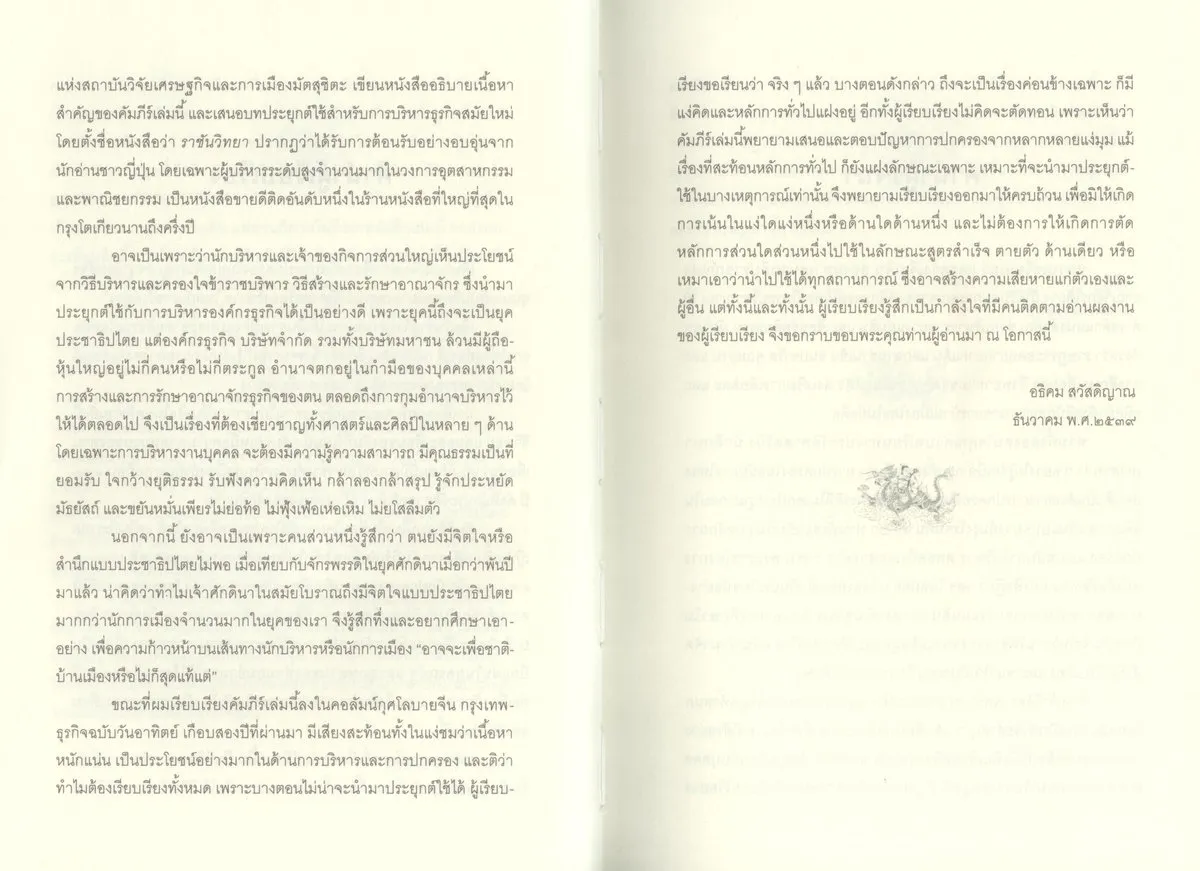 แห่งสถาบันวิจัยเศรษฐกิจและการเมืองมัตสุชิตะ เขียนหนังสืออธิบายเนื้อหา
สำคัญของคัมภีร์เล่มนี้ และเสนอบทประยุกต์ใช้สำหรับการบริหารธุรกิจสมัยใหม่
โดยตั้งชื่อหนังสือว่า ราชันวิทยา ปรากฏว่าได้รับการต้อนรับอย่างอบอุ่นจาก
นักอ่านชาวญี่ปุ่น โดยเฉพาะผู้บริหารระดับสูงจำนวนมากในวงการอุตสาหกรรม
และพาณิชยกรรม เป็นหนังสือขายดีติดอันดับหนึ่งในร้านหนังสือที่ใหญ่ที่สุดใน
กรุงโตเกียวนานถึงครึ่งปี
อาจเป็นเพราะว่านักบริหารและเจ้าของกิจการส่วนใหญ่เห็นประโยชน์
จากวิธีบริหารและครองใจข้าราชบริพาร วิธีสร้างและรักษาอาณาจักร ซึ่งนำมา
ประยุกต์ใช้กับการบริหารองค์กรธุรกิจได้เป็นอย่างดี เพราะยุคนี้ถึงจะเป็นยุค
ประชาธิปไตย แต่องค์กรธุรกิจ บริษัทจำกัด รวมทั้งบริษัทมหาชน ล้วนมีผู้ถือ-
หุ้นใหญ่อยู่ไม่กี่คนหรือไม่กี่ตระกูล อำนาจตกอยู่ในกำมือของบุคคลเหล่านี้
การสร้างและการรักษาอาณาจักรธุรกิจของตน ตลอดถึงการกุมอำนาจบริหารไว้
ให้ได้ตลอดไป จึงเป็นเรื่องที่ต้องเชี่ยวชาญทั้งศาสตร์และศิลป์ในหลาย ๆ ด้าน
โดยเฉพาะการบริหารงานบุคคล จะต้องมีความรู้ความสามารถ มีคุณธรรมเป็นที่
ยอมรับ ใจกว้างยุติธรรม รับฟังความคิดเห็น กล้าลองกล้าสรุป รู้จักประหยัด
มัธยัสถ์ และขยันหมั่นเพียรไม่ย่อท้อ ไม่ฟุ้งเฟ้อเห่อเหิม ไม่ยโสลืมตัว
นอกจากนี้ ยังอาจเป็นเพราะคนส่วนหนึ่งรู้สึกว่า ตนยังมีจิตใจหรือ
สำนึกแบบประชาธิปไตยไม่พอ เมื่อเทียบกับจักรพรรดิในยุคศักดินาเมื่อกว่าพันปี
มาแล้ว น่าคิดว่าทำไมเจ้าศักดินาในสมัยโบราณถึงมีจิตใจแบบประชาธิปไตย
มากกว่านักการเมืองจำนวนมากในยุคของเรา จึงรู้สึกทึ่งและอยากศึกษาเอา-
อย่าง เพื่อความก้าวหน้าบนเส้นทางนักบริหารหรือนักการเมือง “อาจจะเพื่อชาติ-
บ้านเมืองหรือไม่ก็สุดแท้แต่”
ขณะที่ผมเรียบเรียงคัมภีร์เล่มนี้ลงในคอลัมน์กุศโลบายจีน กรุงเทพ-
ธุรกิจฉบับวันอาทิตย์ เกือบสองปีที่ผ่านมา มีเสียงสะท้อนทั้งในแง่ชมว่าเนื้อหา
หนักแน่น เป็นประโยชน์อย่างมากในด้านการบริหารและการปกครอง และติว่า
ทำไมต้องเรียบเรียงทั้งหมด เพราะบางตอนไม่น่าจะนำมาประยุกต์ใช้ได้ ผู้เรียบ-
เรียงขอเรียนว่า จริง ๆ แล้ว บางตอนดังกล่าว ถึงจะเป็นเรื่องค่อนข้างเฉพาะ ก็มี
แง่คิดและหลักการทั่วไปแฝงอยู่ อีกทั้งผู้เรียบเรียงไม่คิดจะตัดทอน เพราะเห็นว่า
คัมภีร์เล่มนี้พยายามเสนอและตอบปัญหาการปกครองจากหลากหลายแง่มุม แม้
เรื่องที่สะท้อนหลักการทั่วไป ก็ยังแฝงลักษณะเฉพาะ เหมาะที่จะนำมาประยุกต์-
ใช้ในบางเหตุการณ์เท่านั้น จึงพยายามเรียบเรียงออกมาให้ครบถ้วน เพื่อมิให้เกิด
การเน้นในแง่ใดแง่หนึ่งหรือด้านใดด้านหนึ่ง และไม่ต้องการให้เกิดการตัด
หลักการส่วนใดส่วนหนึ่งไปใช้ในลักษณะสูตรสำเร็จ ตายตัว ด้านเดียว หรือ
เหมาเอาว่านำไปใช้ได้ทุกสถานการณ์ ซึ่งอาจสร้างความเสียหายแก่ตัวเองและ
ผู้อื่น แต่ทั้งนี้และทั้งนั้น ผู้เรียบเรียงรู้สึกเป็นกำลังใจที่มีคนติดตามอ่านผลงาน
ของผู้เรียบเรียง จึงขอกราบขอบพระคุณท่านผู้อ่านมา ณ โอกาสนี้
อธิคม สวัสดิญาณ
ธันวาคม พ.ศ.๒๕๓๙